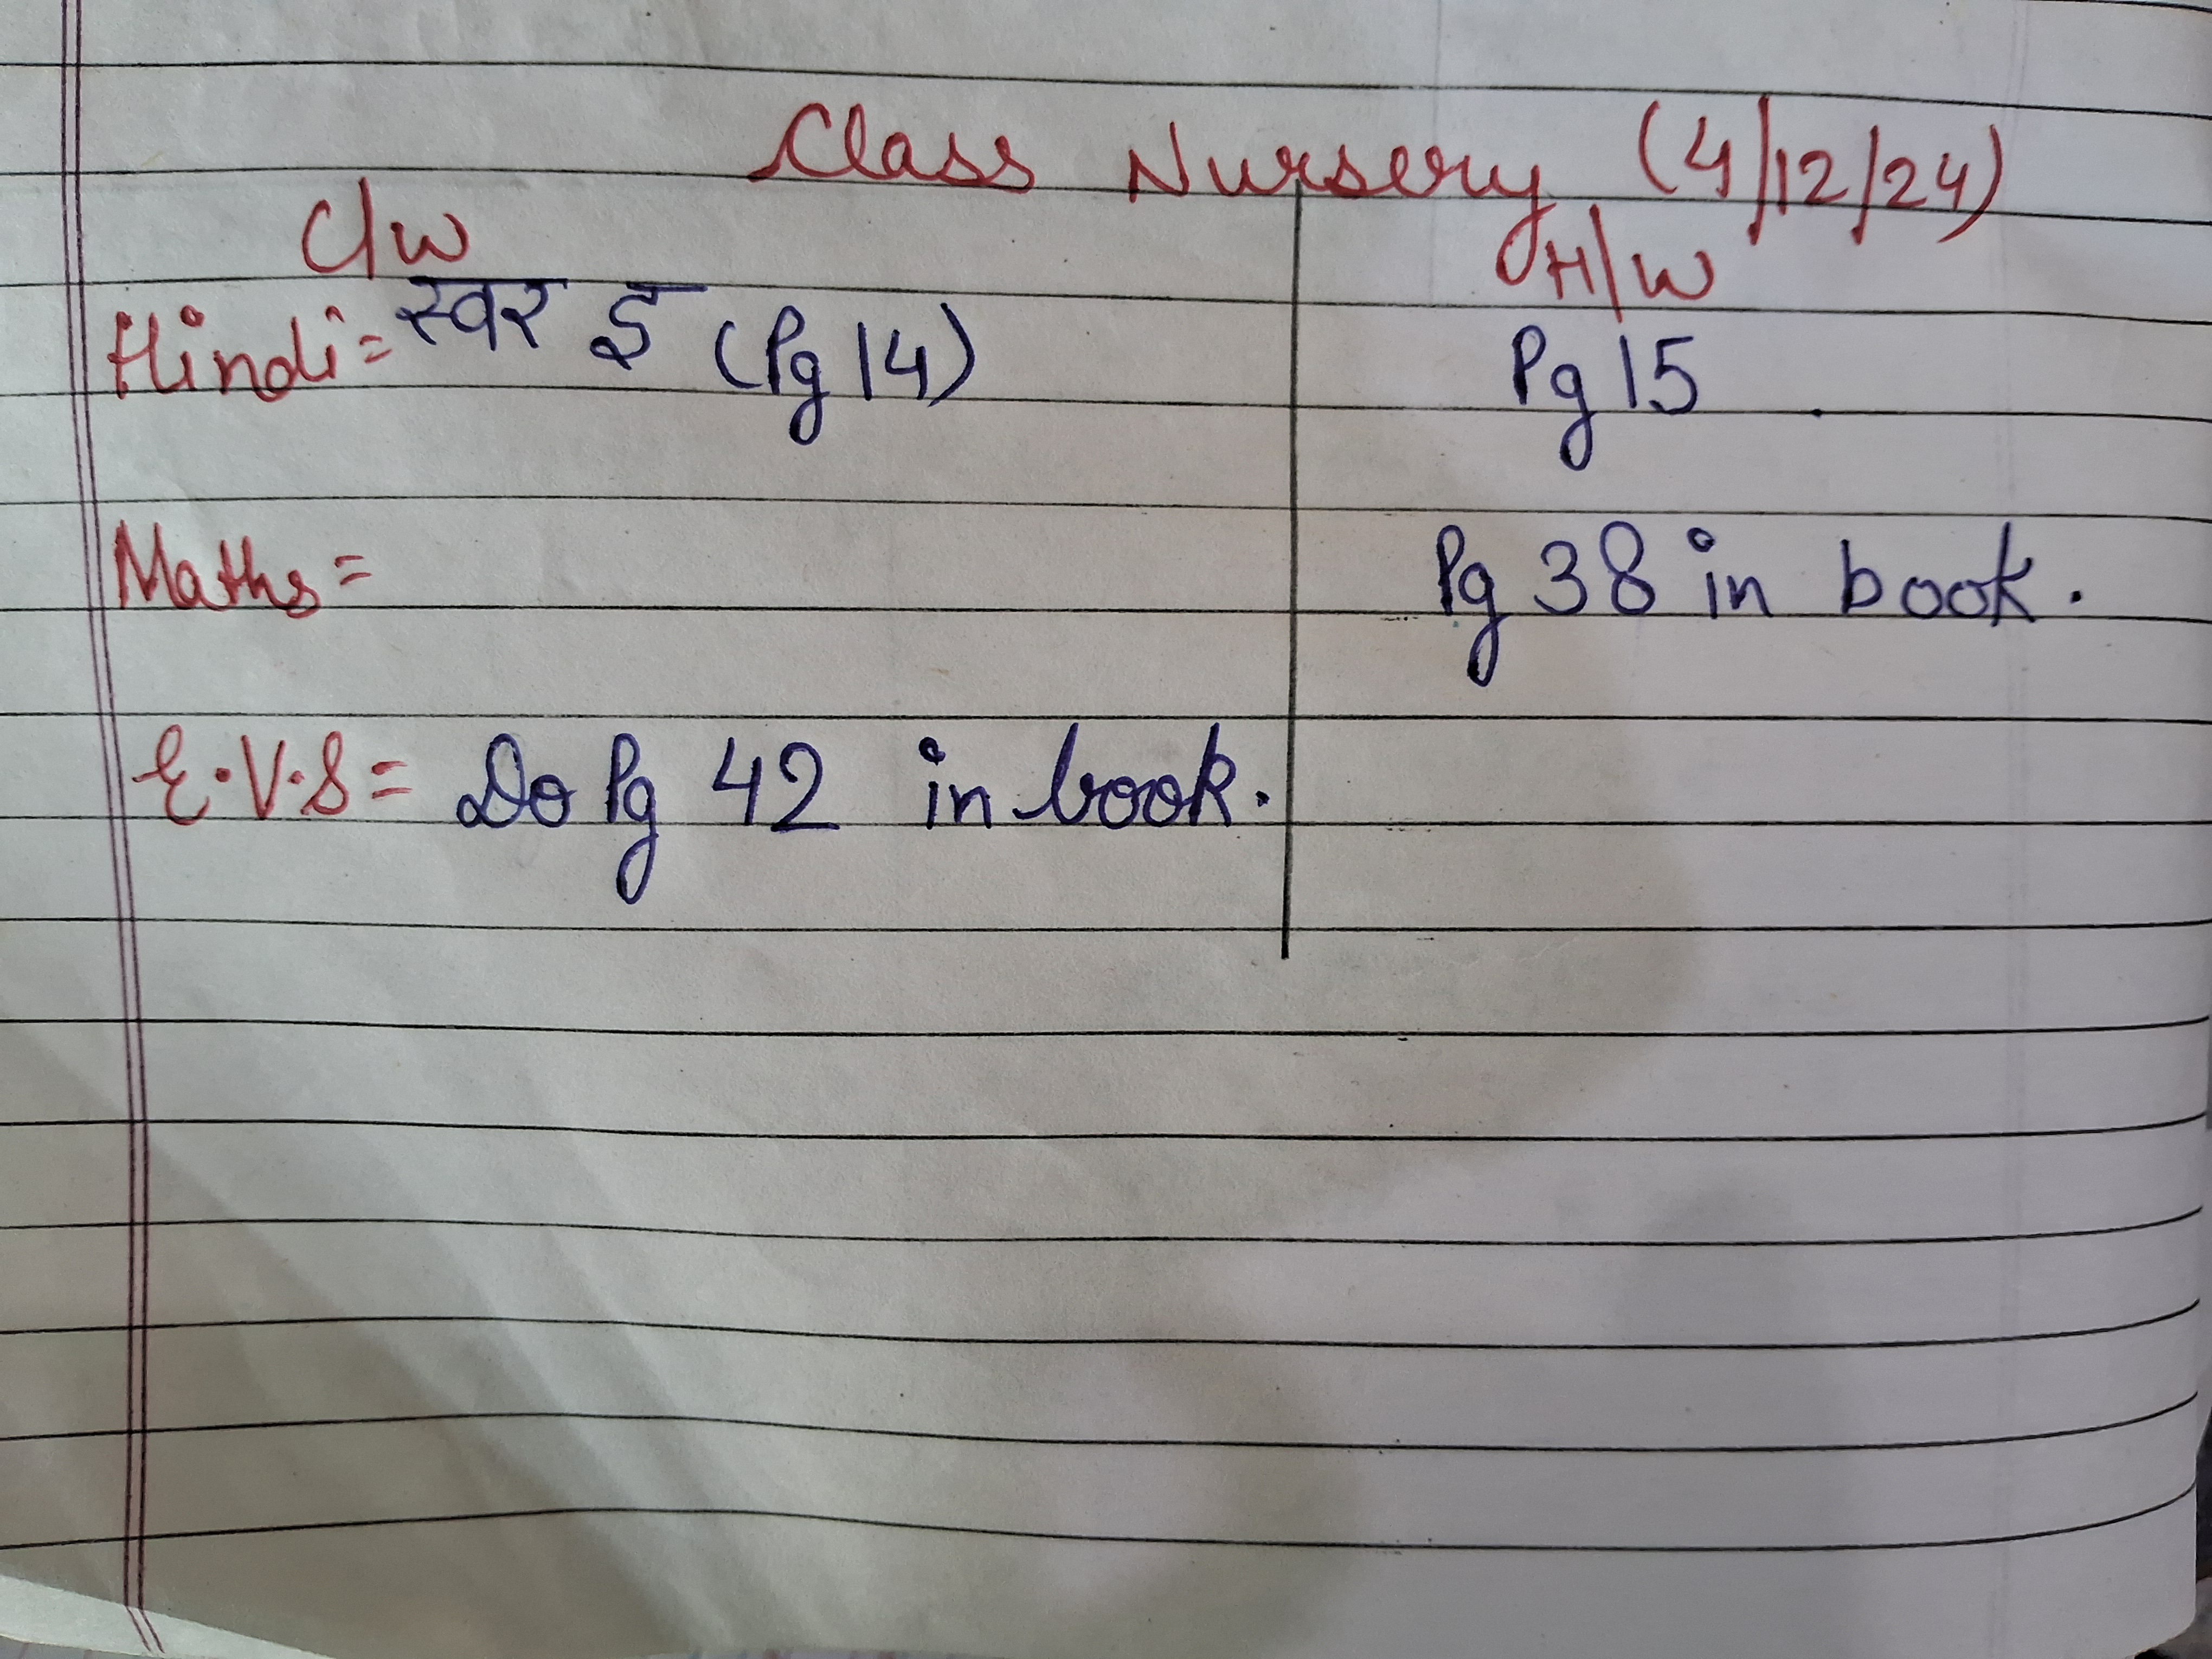 Class Nursery (4/12/24)
C/W H/W
Hindi = स्वर इ (Pg 14) Pg 15
Maths = Pg 38 in book.
E.V.S = Do Pg 42 in book.